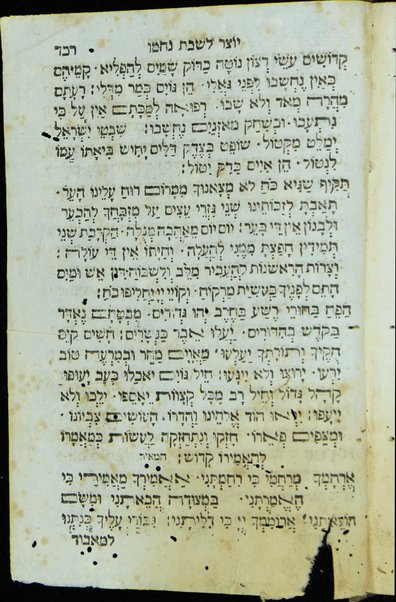 יוצר לשבת נחמו רבד
קדושים עשי רצון נוטה כדוק שמים להפליא׃ קמיהם
כאין נחשבו לפני נאלו׃ הן גוים כמר מדלי׃ רעתם
מהרה מאד ולא שבו׃ רפואה למכתם אין על כי
נתעבו׃ וכשחק מאזנים נחשבו׃ שבטי ישראל
ימלט מקטול׃ שופט בצדק דלים יחיש ביאתו עמו
לנטול׃ הן איים כדק יטול׃
תקיף שגיא כח לא מצאנוך ממרום רוח עלינו הערה׃
תאבת לזכותינו שני גזרי עצים על מזבחך להבער׃
ולבנון אין די בער׃ יום יום מאהבה מגולה׃ הקרבת שני
תמידין חפצת ממני להעלה׃ וחיתו אין די עולה׃
וצרות הראשנות להעביר מלב ולשכוח׃ אש ומים
התם לפניך בעשית מרקוח׃ וקווי יי יחליפו כח׃
הפח בחורי רשע בחרב יהו גדודים׃ מבטחם נאדר
בקדש בהדורים׃ יעלו אבר כנשרים׃ חשים קים
חקיך ותורתך יעלעו׃ מאוים מהר ובמרעה טוב
ירעו׃ ירוצו ולא ייגעו׃ חיל גוים יאכלו כעב יעופו׃
קהל גדול וחיל רב מכל קצוות יאספו׃ ילכו ולא
ייעפו׃ יראו הוד אלהינו והדרו׃ העושים צביונו
ומצפים פארו׃ חזקו ונתחזקה לעשות כמאמרו
להאמירו קדוש׃ המאיר
ארחמך מרחמי כי רחמתני׃ אאמירך מאמירי כי
האמרתני׃ במצודה הבאתני ומשם
הוצאתני׃ ארוממך יי כי דליתני׃ גבורי עליך בגתנו
למאביד